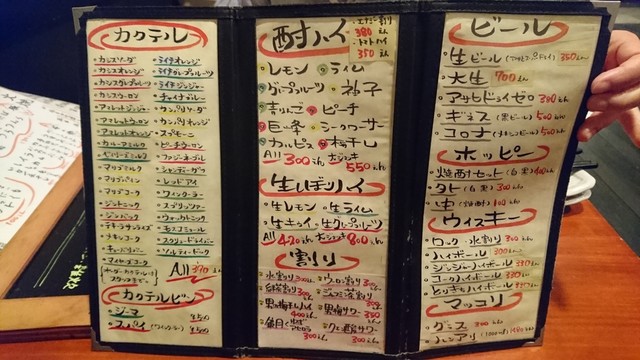 カクテル
カシスソーダ
カシスオレンジ
カシスグレープフルーツ
カシスウーロン
アマレットジンジャー
アマレットウーロン
アマレットオレンジ
カルーアミルク
マリブミルク
マリブパイン
マリブコーク
ジントニック
ジンバック
テキーラサンライズ
ライチオレンジ
ライチグレープフルーツ
ライチジンジャー
チャイナブルー
カンパリソーダ
カンパリオレンジ
スプモーニ
ピーチウーロン
ファジーネーブル
シャンディーガフ
レッドアイ
ワインクーラー
スプリッツァー
ウォッカトニック
モスコミュール
スクリュードライバー
ソルティードッグ
All 370
カクテルビン
ジーマ 450
スパイ 450
酎ハイ
380えん
トマトハイ
350えん
レモン ライム
グレープフルーツ 柚子
青りんご ピーチ
巨峰 シークワーサー
カルピス 梅干し
All 300えん 大ジョッキ 550えん
生しぼりハイ
生レモン 生ライム
生キウイ 生グレープフルーツ
All 420えん 大ジョッキ 800えん
割り
水割り ウーロン割り
300
ビール
生ビール (アサヒスーパードライ) 380えん
大生 700えん
アサヒドライゼロ 300えん
ギネス (黒ビール) 500えん
コロナ 500えん
ホッピー
焼酎セット(白・黒) 400えん
外(白・黒) 300えん
中(焼酎) 100えん
ウィスキー
ロック・水割り 300えん
ハイボール 300えん
ジンジャーハイボール 330えん
コークハイボール 330えん
マッコリ
グラス 300えん